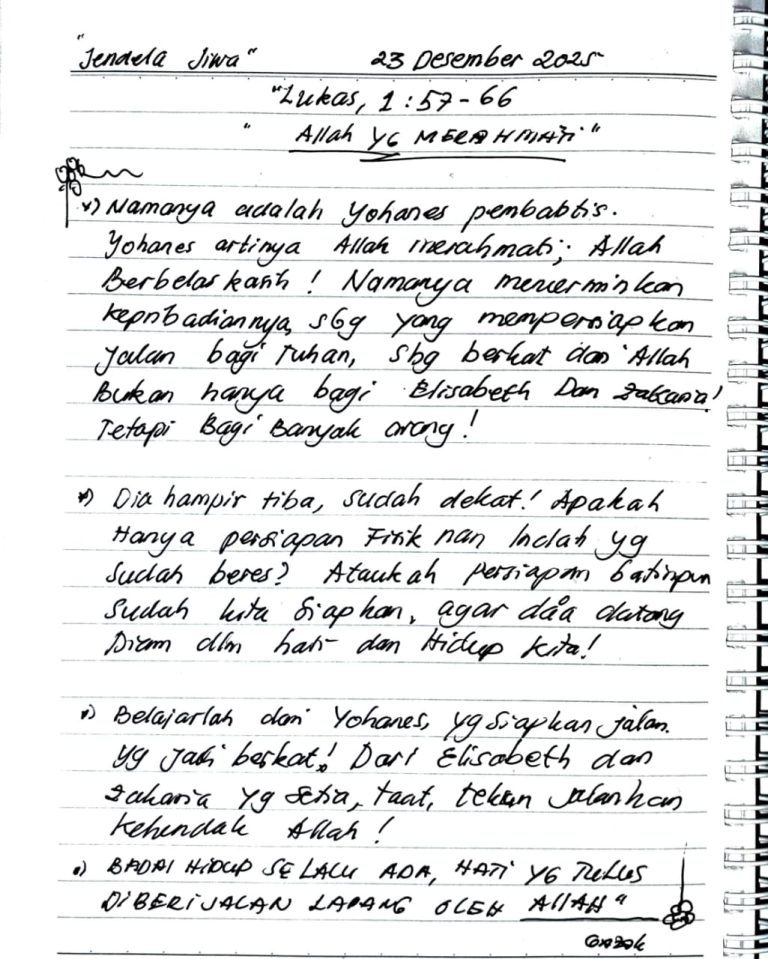 "Jendela Jiwa" 23 Desember 2025
"Lukas, 1:57-66
"Allah YG MERAHMATI"
*) Namanya adalah Yohanes pembabtis.
Yohanes artinya Allah merahmati; Allah
Berbelas kasih! Namanya mencerminkan
kepribadiannya, sbg yang mempersiapkan
jalan bagi Tuhan, sbg berkat dari Allah
Bukan hanya bagi Elisabeth Dan Zakaria!
Tetapi Bagi Banyak orang!
*) Dia hampir tiba, sudah dekat! Apakah
Hanya persiapan Fisik nan Indah yg
sudah beres? Ataukah persiapan batinpun
sudah kita siapkan, agar dia datang
Diam dlm hati dan Hidup kita!
*) Belajarlah dari Yohanes, yg siapkan jalan.
yg jadi berkat! Dari Elisabeth dan
Zakaria yg setia, taat, tekun jalankan
kehendak Allah!
*) BADAI HIDUP SELALU ADA, HATI YG TULUS
DIBERI JALAN LAPANG OLEH ALLAH"